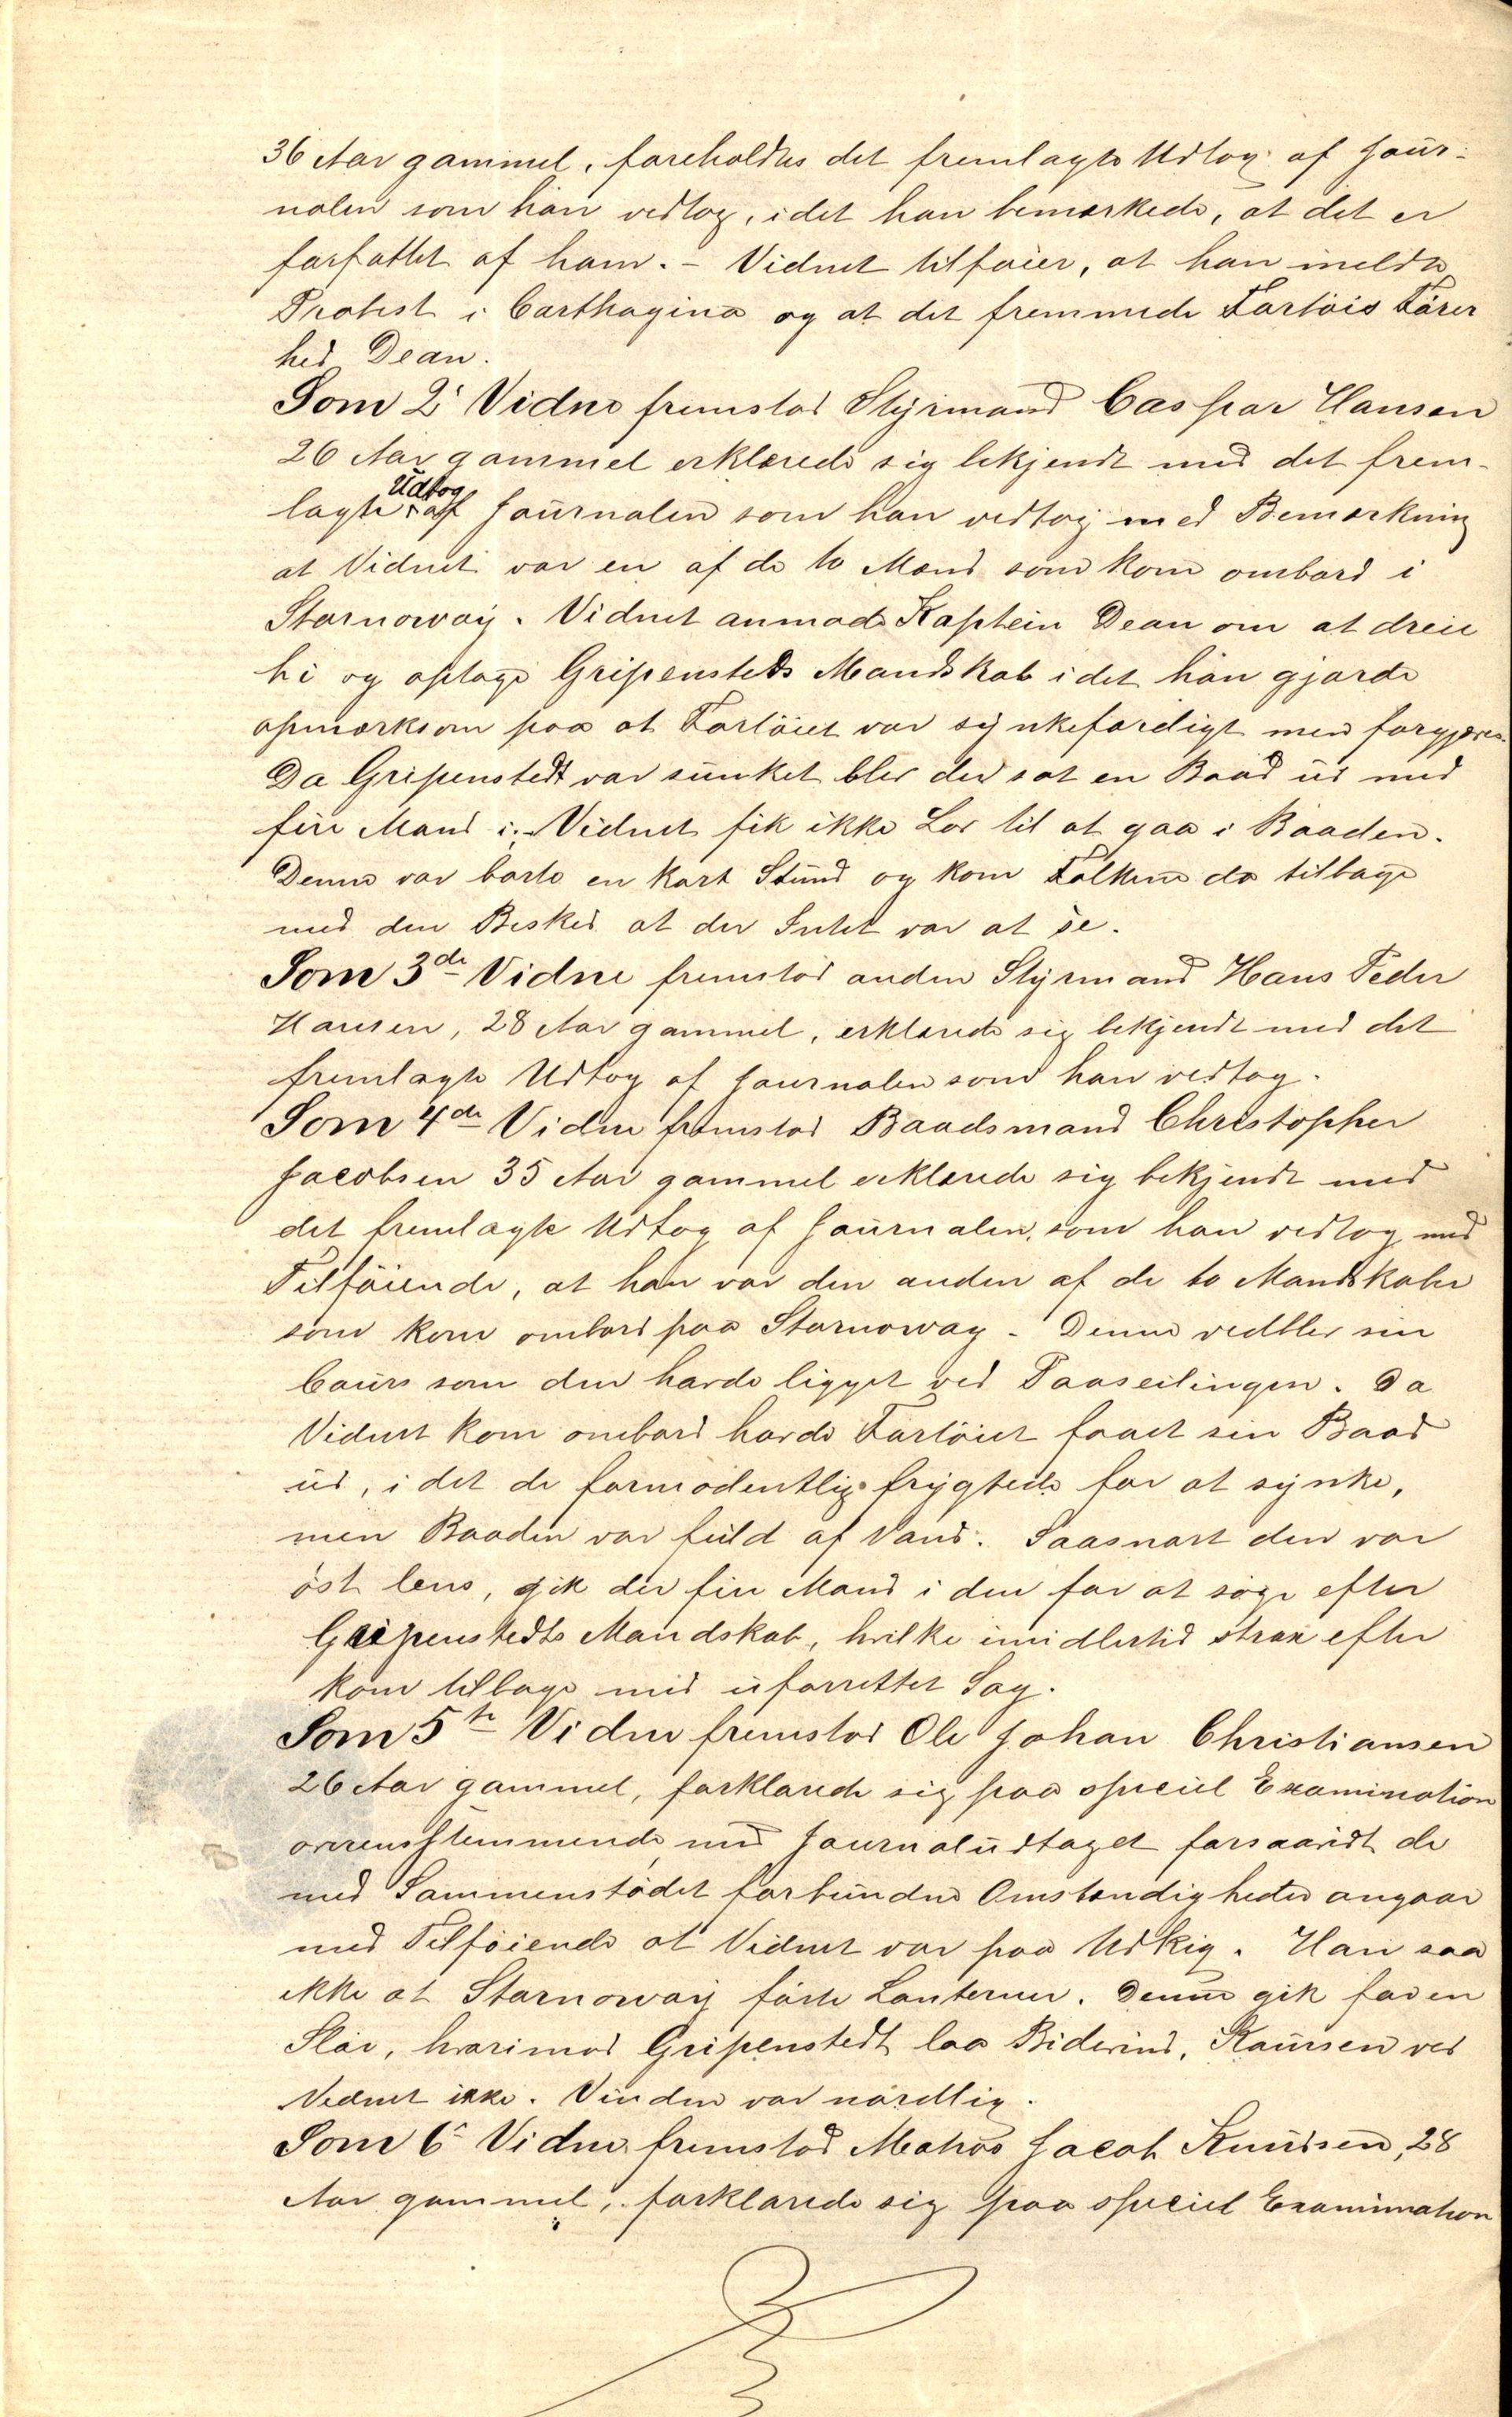 36 Aar gammel, foreholdtes det fremlagte Udtog af Jour-
nalen som han vedtog, idet han bemærkede, at det er
forfattet af ham. - Vidnet tilføier, at han meldte
Protest i Carthagina og at det fremmede Fartöis Förer
hed Dean.
Som 2t Vidne fremstod Styrmand Caspar Hansen
26 Aar gammel erklærede sig bekjendt med det frem-
lagte Udtog af Journalen som han vedtog med Bemærkning
at Vidnet var en af de to Mænd som kom ombord i
Stornoway. Vidnet anmode Kaptein Dean om at dreie
bi og optage Gripensteds Mandskab idet han gjorde
opmærksom paa at Fartöiet var synkefærdigt men forgjæves.
Da Gripenstedt var sunket blev der sat en Baad ud med
fire Mand i. - Vidnet fik ikke Lov til at gaa i Baaden.
Denne var borte en kort Stund og kom Folkene da tilbage
med den Besked at der Intet var at se.
Som 3de Vidne fremstod anden Styrmand Hans Peder
Hansen, 28 Aar gammel, erklærede sig bekjendt med det
fremlagte Udtog af Journalen som han vedtog.
Som 4de Vidne fremstod Baadsmand Christopher
Jacobsen 35 Aar gammel erklærede sig bekjendt med
det fremlagte Udtog af Journalen, som han vedtog med
Tilföiende, at han var den anden af de to Mandskaber
som kom ombord paa Stornoway. Denne vedblev sin
Cours som den havde ligget ved Paaseilingen. Da
Vidnet kom ombord havde Fartöiet faaet sin Baad
ud, i det de formodentlig frygtede for at synke,
men Baaden var fuld af Vand. Saasnart den var
öst lens, gik der fire Mand i den for at söge efter
Gripenstedts Mandskab, hvilke imidlertid strax efter
kom tilbage med uforrettet Sag.
Som 5te Vidne fremstod Ole Johan Christiansen
26 Aar gammel, forklarede sig paa speciel Examination
overensstemmende med Journaludtoget forsaavidt de
med Sammenstödet forbundne Omstændigheder angaar
med Tilföiende at Vidnet var paa Udkig. Han saa
ikke at Stornoway förte Lanterner. Denne gik for en
Slör, hvorimod Gripenstedt laa Bidevind, Kaursen ved
Vidnet ikke. Vinden var nordlig.
Som 6t Vidne fremstod Matros Jacob Knudsen, 28
Aar gammel, forklarede sig paa speciel Examination